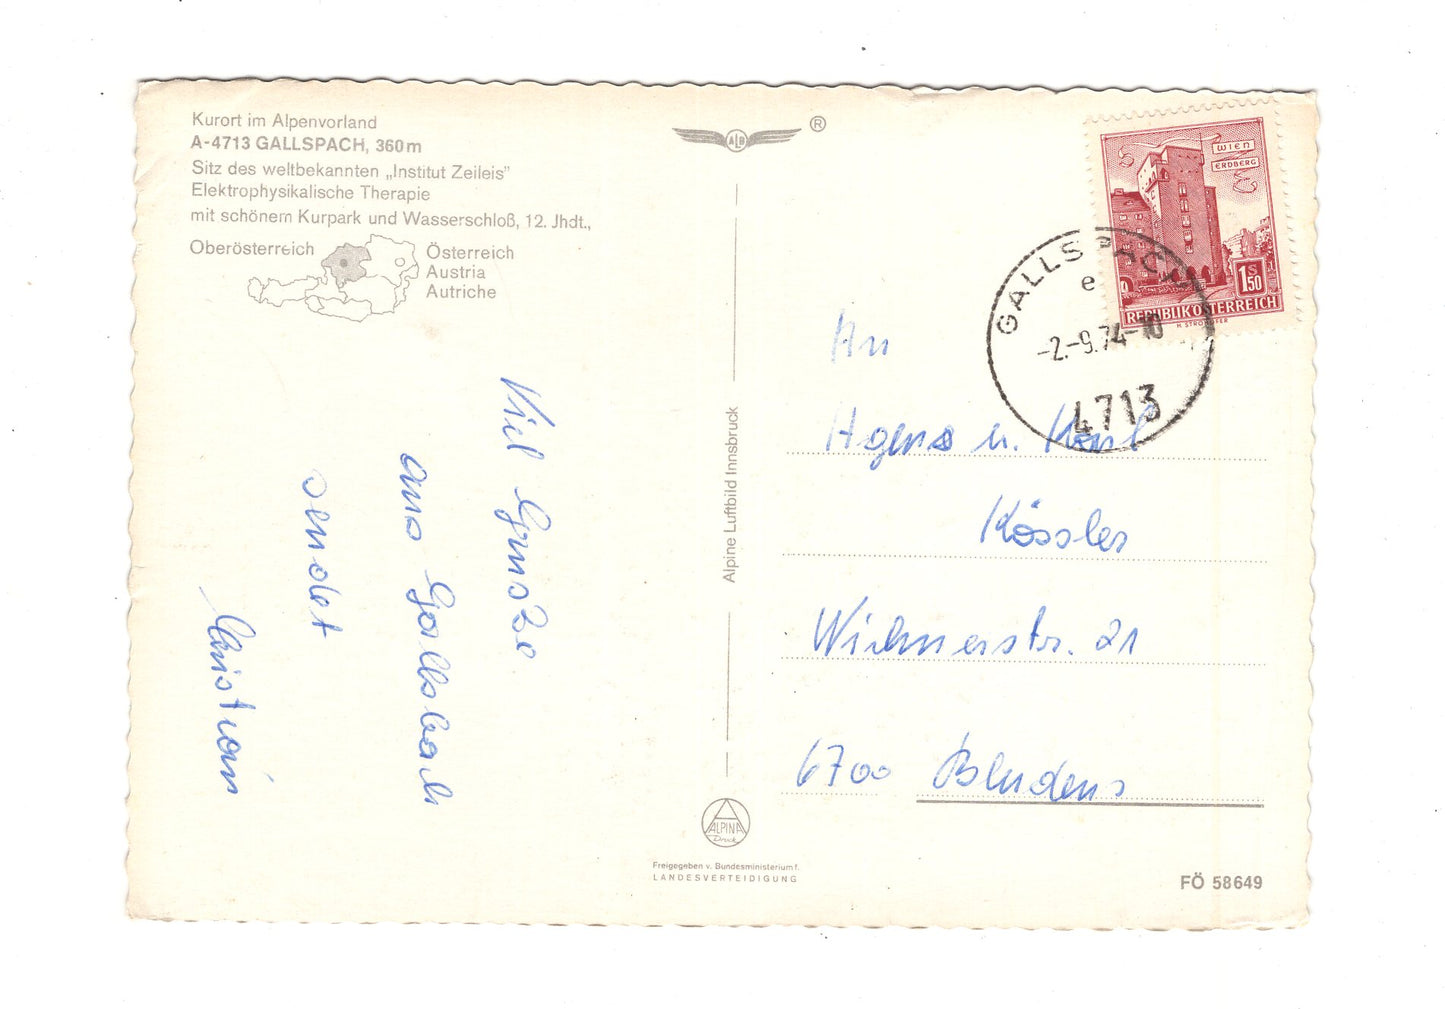 Kurort im Alpenvorland
A-4713 GALLSPACH, 360m
Sitz des weltbekannten „Institut Zeileis”
Elektrophysikalische Therapie
mit schönem Kurpark und Wasserschloß, 12. Jhdt.,
Oberösterreich
Österreich
Austria
Autriche
Viel Grüsse
aus Gallsbach
sendet
Christian
ALB ®
Alpine Luftbild Innsbruck
ALPINA
Druck
Freigegeben v. Bundesministerium f.
LANDESVERTEIDIGUNG
WIEN
ERDBERG
1S50
REPUBLIK ÖSTERREICH
H. STROHOFER
GALLSPACH
e
-2.-9.74-10
4713
An
Agnes u. Karl
Kössler
Wichnerstr. 21
6700 Bludenz
FÖ 58649